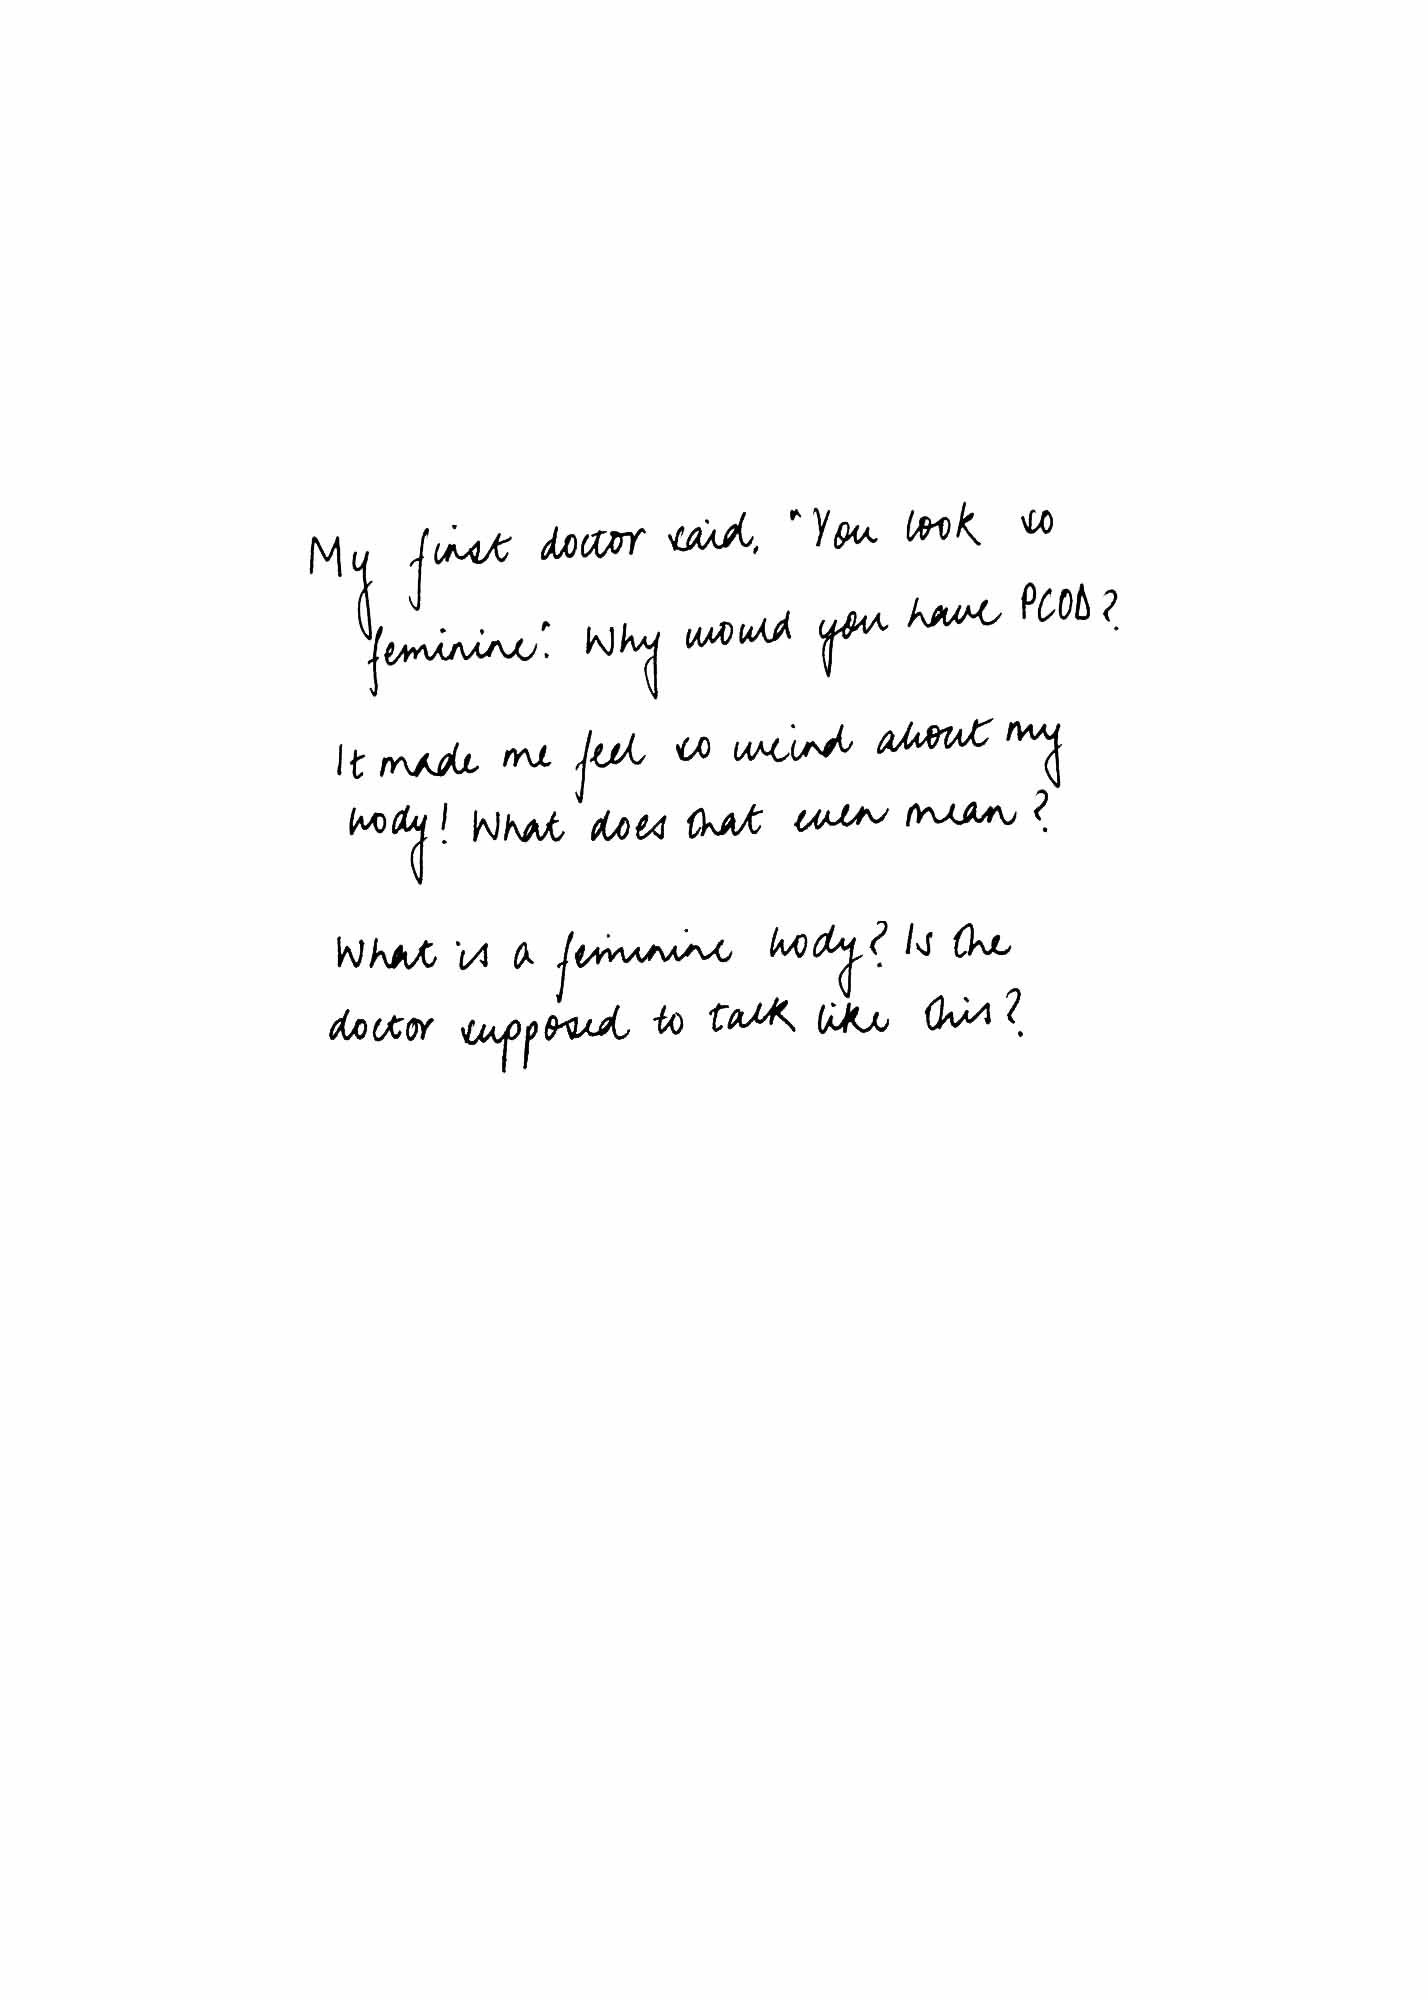 My first doctor said, "You look so
feminine". Why would you have PCOD?
It made me feel so weird about my
body! What does that even mean?
What is a feminine body? Is the
doctor supposed to talk like this?